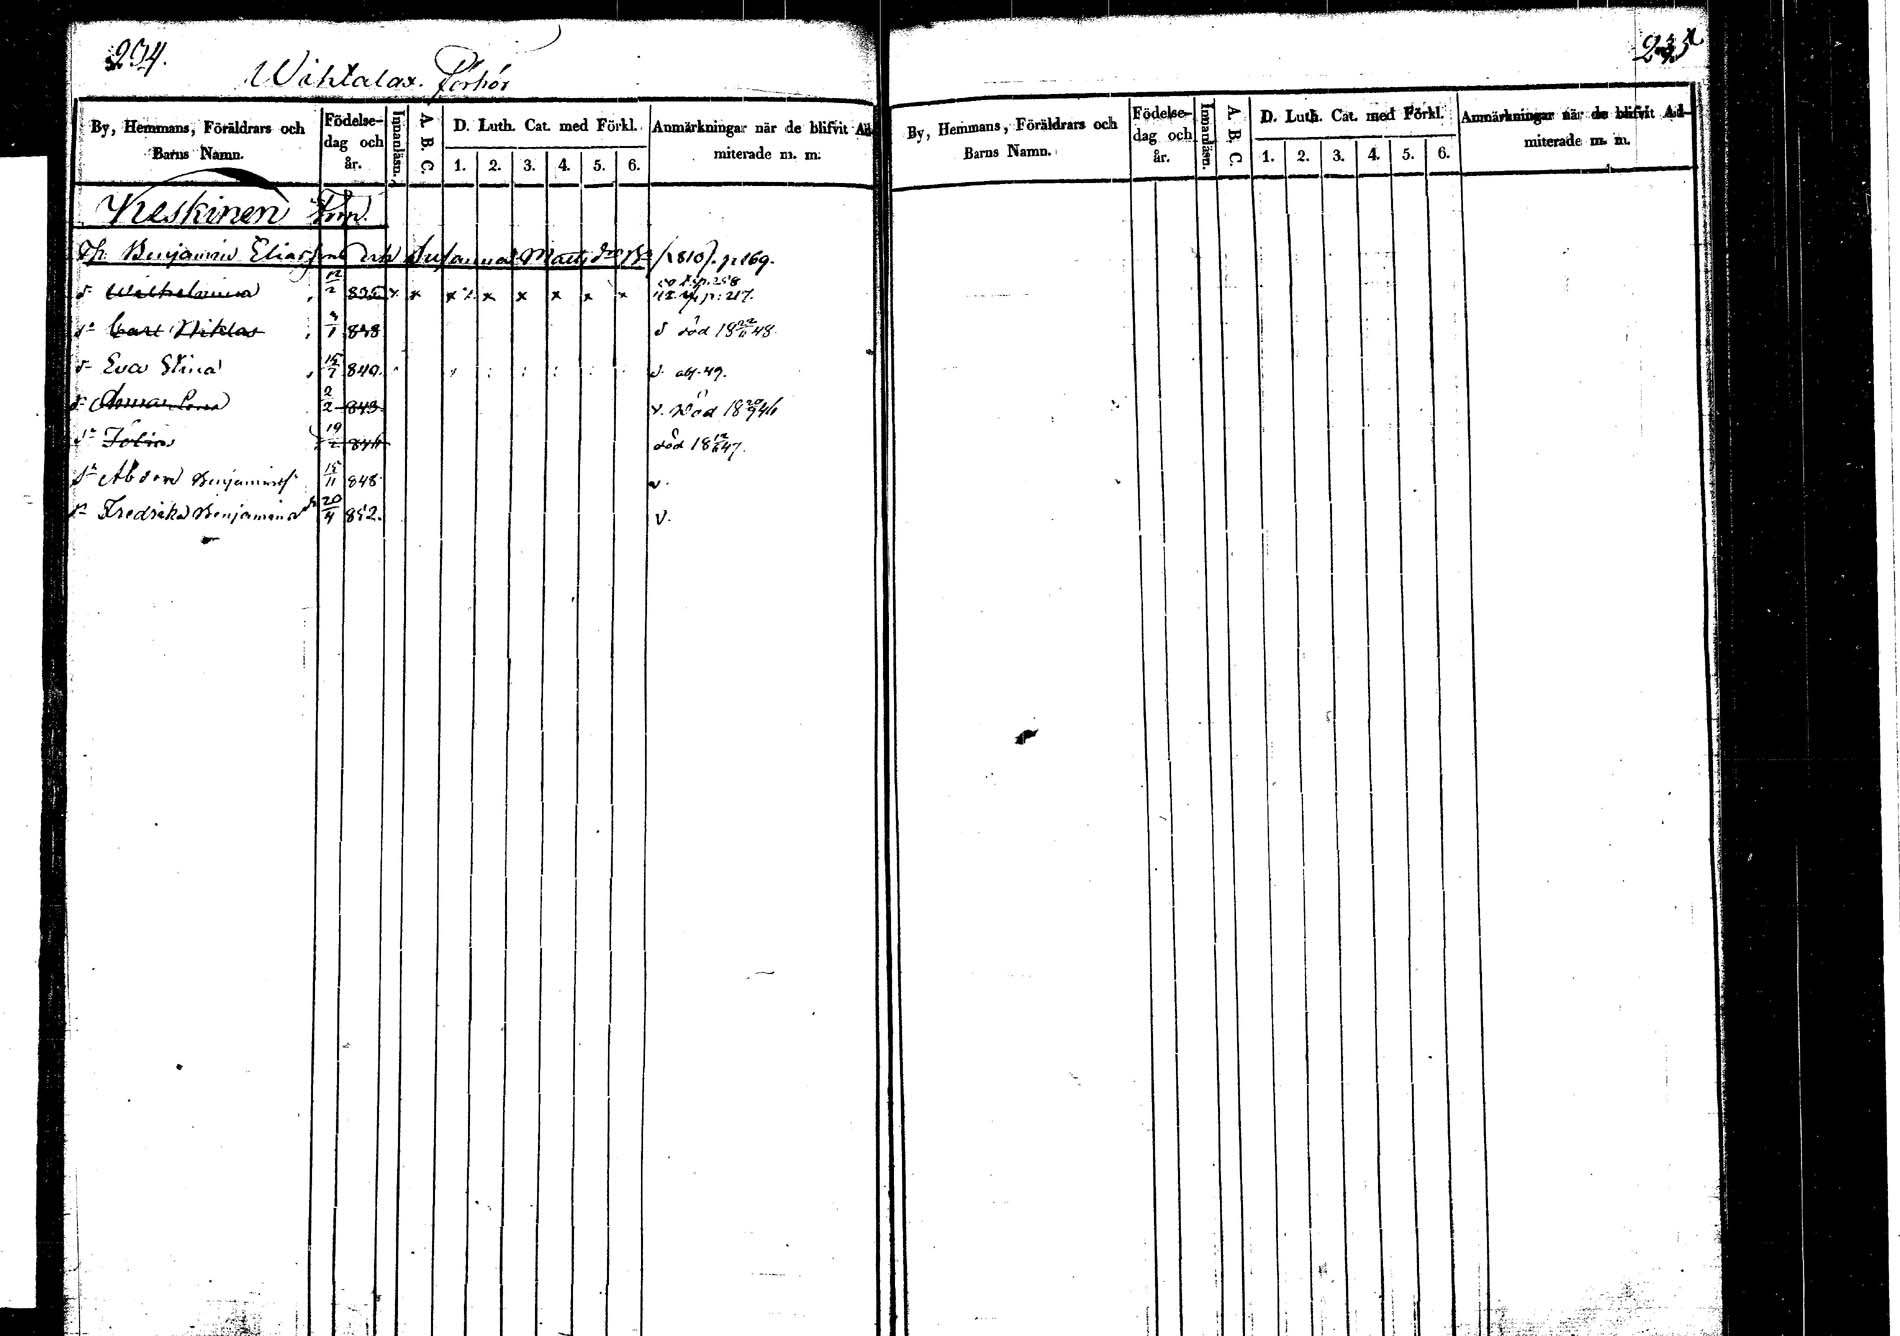 234.
Wihtalax. Förhör
By, Hemmans, Föräldrars och Barns Namn. Födelse-dag och år. Innanläsn. A. B. C. D. Luth. Cat. med Förkl. 1. 2. 3. 4. 5. 6. Anmärkningar när de blifvit Ad-miterade m. m.
Keskinen
Benjamin Eliass. och Susanna Matts dr (1810). p 169.
Wilhelmina 12/2 835 x x x x x x x x p. 258
p: 217.
Carl Niklas 1 838 död 18 22 48.
Eva Stina 15/7 840. abs. 49.
Anna Lovisa 2/2 843 v. död 18 20/9 46
död 18 12 47.
Abdon Benjaminss. 15/11 848 v.
Fredrika Benjamins dr 20/4 852. v.
235
By, Hemmans, Föräldrars och Barns Namn. Födelse-dag och år. Innanläsn. A. B. C. D. Luth. Cat. med Förkl. 1. 2. 3. 4. 5. 6. Anmärkningar när de blifvit Ad-miterade m. m.